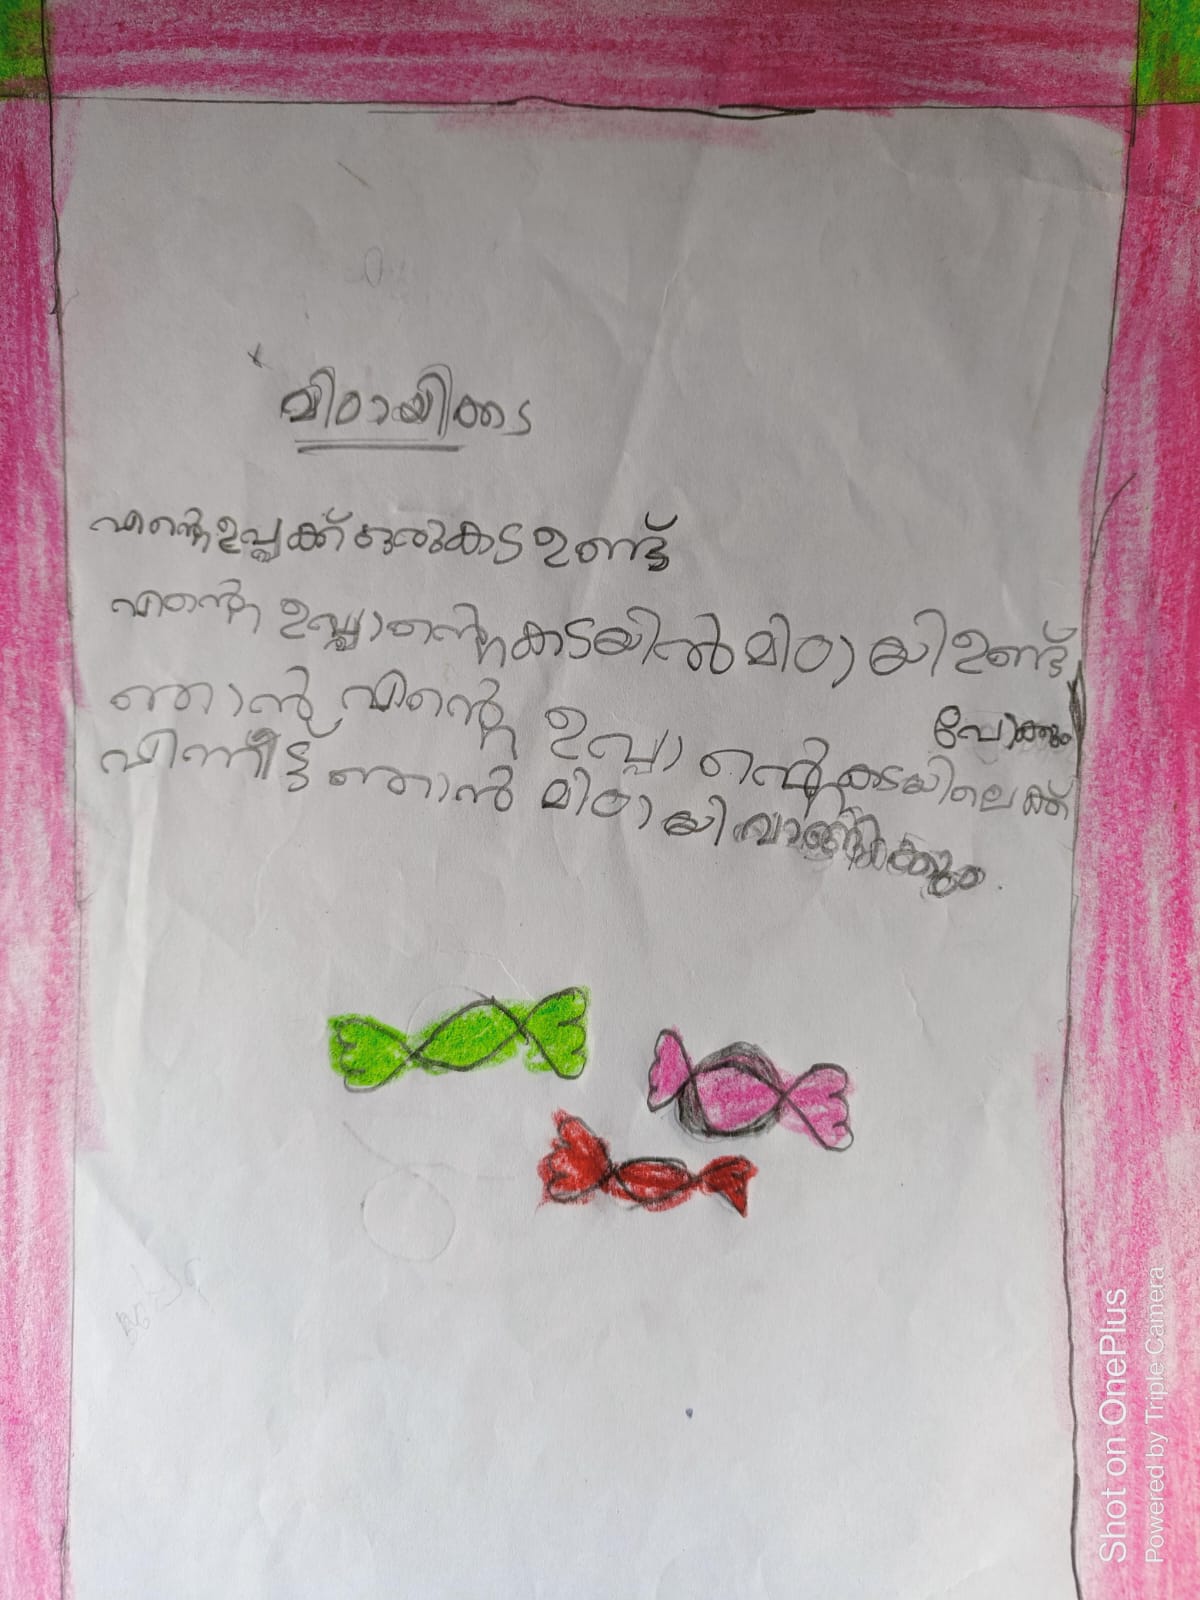 മിഠായിക്കട
എന്റെ ഉപ്പക്ക് ഒരു കട ഉണ്ട്
എന്റെ ഉപ്പാന്റെ കടയിൽ മിഠായി ഉണ്ട്
ഞാൻ എന്റെ ഉപ്പാന്റെ കടയിലെക്ക്
പോകും
പിന്നീട് ഞാൻ മിഠായി
Shot on OnePlus
Powered by Triple Camera